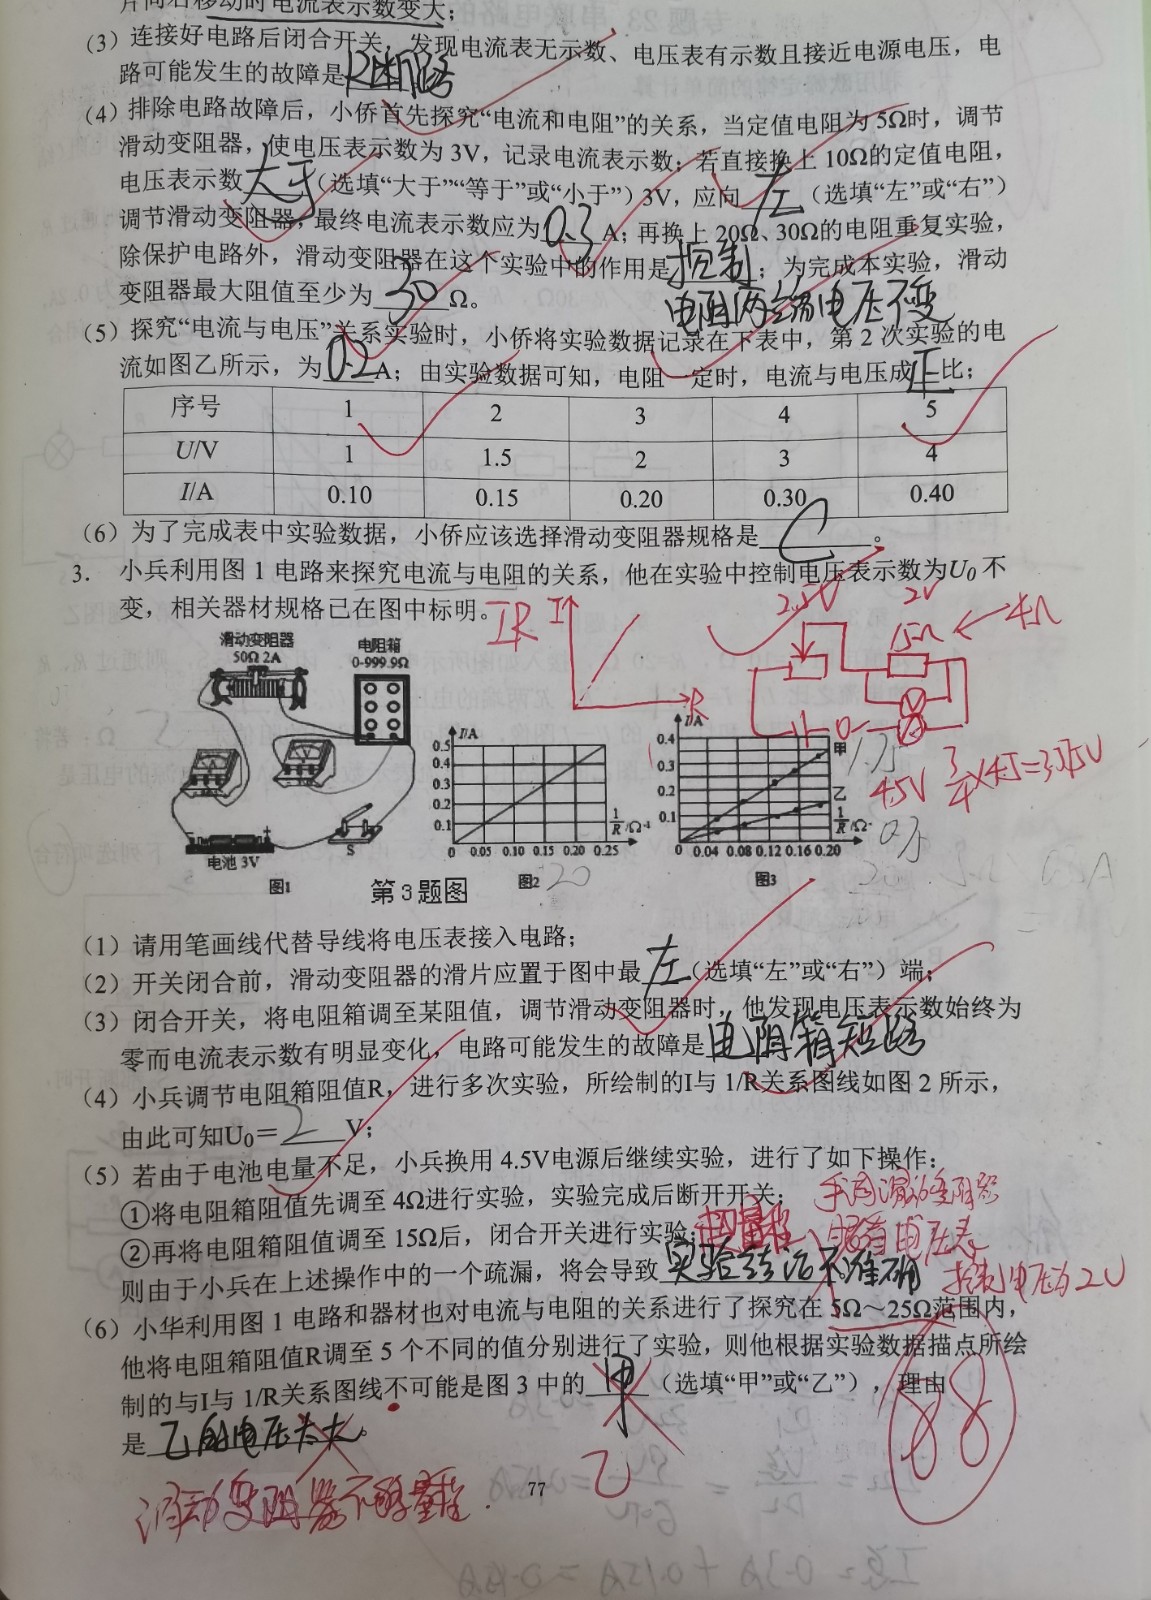 片向右移动时电流表示数变大；
(3) 连接好电路后闭合开关，发现电流表无示数、电压表有示数且接近电源电压，电
路可能发生的故障是R断路
(4) 排除电路故障后，小侨首先探究“电流和电阻”的关系，当定值电阻为5Ω时，调节
滑动变阻器，使电压表示数为3V，记录电流表示数；若直接换上10Ω的定值电阻，
电压表示数大于(选填“大于”“等于”或“小于”) 3V，应向左(选填“左”或“右”)
调节滑动变阻器，最终电流表示数应为0.3A；再换上20Ω、30Ω的电阻重复实验，
除保护电路外，滑动变阻器在这个实验中的作用是控制；为完成本实验，滑动
电阻两端电压不变
变阻器最大阻值至少为30Ω。
(5) 探究“电流与电压”关系实验时，小侨将实验数据记录在下表中，第2次实验的电
流如图乙所示，为0.2A；由实验数据可知，电阻一定时，电流与电压成正比；
序号 1 2 3 4 5
U/V 1 1.5 2 3 4
I/A 0.10 0.15 0.20 0.30 0.40
(6) 为了完成表中实验数据，小侨应该选择滑动变阻器规格是C。
3. 小兵利用图1电路来探究电流与电阻的关系，他在实验中控制电压表示数为U0不
变，相关器材规格已在图中标明。
IR I
R
2.5V 2V
15Ω 4Ω
滑动变阻器
50Ω 2A
电阻箱
0-999.9Ω
电池 3V
S
图1
I/A
0.5
0.4
0.3
0.2
0.1
0 0.05 0.10 0.15 0.20 0.25
1/R /Ω-1
图2
I/A
0.4
0.3
0.2
0.1
0 0.04 0.08 0.12 0.16 0.20
甲
乙
1/R /Ω-
图3
4.5V 3/4×4.5=3.375V
20
20
第3题图
(1) 请用笔画线代替导线将电压表接入电路；
(2) 开关闭合前，滑动变阻器的滑片应置于图中最左(选填“左”或“右”) 端；
(3) 闭合开关，将电阻箱调至某阻值，调节滑动变阻器时，他发现电压表示数始终为
零而电流表示数有明显变化，电路可能发生的故障是电阻箱短路
(4) 小兵调节电阻箱阻值R，进行多次实验，所绘制的I与1/R关系图线如图2所示，
由此可知U0=2V；
(5) 若由于电池电量不足，小兵换用4.5V电源后继续实验，进行了如下操作：
①将电阻箱阻值先调至4Ω进行实验，实验完成后断开开关；
手调滑动变阻器
②再将电阻箱阻值调至15Ω后，闭合开关进行实验；
眼看电压表
则由于小兵在上述操作中的一个疏漏，将会导致实验结论不准确
控制电压为2V
(6) 小华利用图1电路和器材也对电流与电阻的关系进行了探究在5Ω～25Ω范围内，
他将电阻箱阻值R调至5个不同的值分别进行了实验，则他根据实验数据描点所绘
制的与I与1/R关系图线不可能是图3中的甲(选填“甲”或“乙”)，理由
是乙的电压太大。
88
乙
77
滑动变阻器不够量程